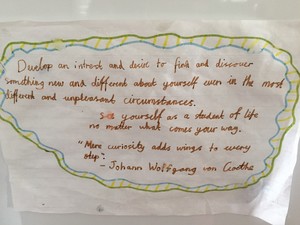 Develop an intrest and desire to find and discover
something new and different about yourself even in the most
different and unpleasant circumstances.
See yourself as a student of life
no matter what comes your way.
"Mere curiosity adds wings to every
step".
- Johann Wolfgang von Goethe